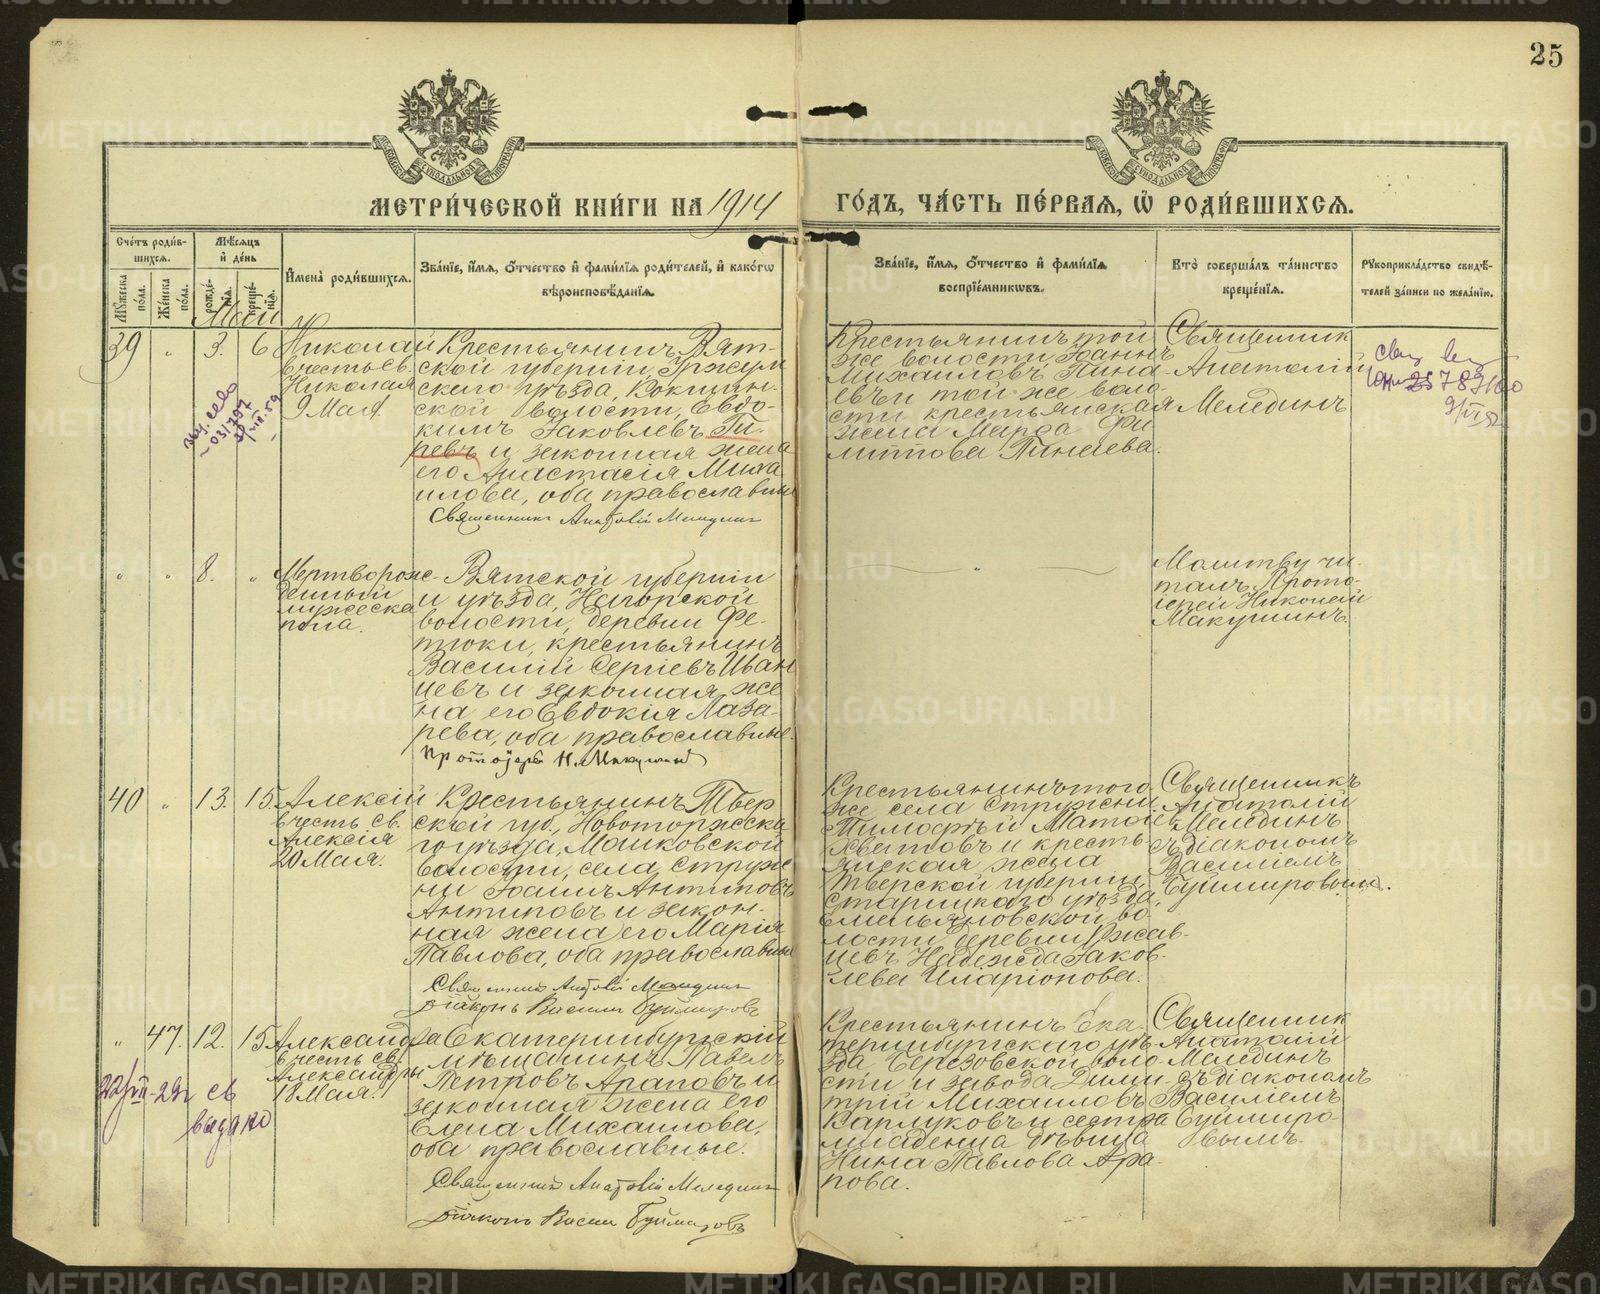 25
МЕТРИ́ЧЕСКОЙ КНИ́ГИ НА 1914 ГО́ДЪ, ЧА́СТЬ ПЕ́РВАЯ, Ѿ РОДИ́ВШИХСЯ.
Сче́тъ роди́вшихся.
Мꙋжеска по́ла.
Же́нска по́ла.
Мѣ́сяцъ и҆ де́нь
рожде́нїя.
креще́нїя.
И҆мена̀ роди́вшихся.
Зва́нїе, и҆́мя, ѻ҆́тчество и҆ фами́лїя роди́телей, и҆ како́гѡ
вѣроисповѣ́данїя.
Зва́нїе, и҆́мя, ѻ҆́тчество и҆ фами́лїя
воспрїе́мникѡвъ.
Кто̀ соверша́лъ та́инство
креще́нїя.
Рꙋкоприкла́дство свидѣ́-
телей за́писи по жела́нїю.
Май
39 " 3. 6
Николай
въ честь Св.
Николая
9 Мая.
Крестьянинъ Вят-
ской губерніи, Уржум
скаго уѣзда, Кокшин-
ской волости, Евдо-
кимъ Іаковлевъ Ги-
ревъ и законная жена
его Анастасія Миха
илова, оба православные
Священникъ Анатолій Мелединъ
Крестьянинъ той
же волости Іоаннъ
Михаиловъ
и той же воло-
сти крестьянская
жена Марѳа Фи
липпова
Священникъ
Анатолій
Мелединъ
" " 8. "
Мертворож-
денный
мужеска
пола.
Вятской губерніи
и уѣзда, Нагорской
волости, деревни Фе-
тюки, крестьянинъ
Василій Сергіевъ Иван
цевъ и законная же
на его Евдокія Лаза-
рева, оба православные.
Протоіерей Н. Макушинъ
Молитву чи-
талъ Прото-
іерей Николай
Макушинъ.
40 " 13. 15.
Алексій
въ честь св.
Алексія
20 Мая.
Крестьянинъ Твер
ской губ., Новоторжска
го уѣзда, Машковской
волости, села Струж
ни Іоаннъ Антиповъ
Антиповъ и закон-
ная жена его Марія
Павлова, оба православные
Священникъ Анатолій Мелединъ
Діаконъ Василій Буймировъ
Крестьянинъ того
же села Стружни
Тимоѳей
и кресть-
янская жена
Тверской губерніи,
Старицкаго уѣзда,
Емельяновской во-
лости деревни Ржав-
цевъ Надежда Іаков-
лева Иларіонова.
Священникъ
Анатолій
Мелединъ
съ діакономъ
Василіемъ
Буймировымъ.
" 47. 12. 15
Александра
въ честь св.
Александры
18 Мая.
Екатеринбургскій
мѣщанинъ Павелъ
Петровъ Араповъ и
законная жена его
Елена Михаилова,
оба православные.
Священникъ Анатолій Мелединъ
Діаконъ Василій Буймировъ
Крестьянинъ Ека-
теринбургскаго уѣз
да, Березовской воло-
сти и завода Дими-
трій Михаиловъ
Карлуковъ и сестра
младенца дѣвица
Нина Павлова Ара-
пова.
Священникъ
Анатолій
Мелединъ
съ діакономъ
Василіемъ
Буймиро-
вымъ.
выдано
METRIKI.GASO-URAL.RU